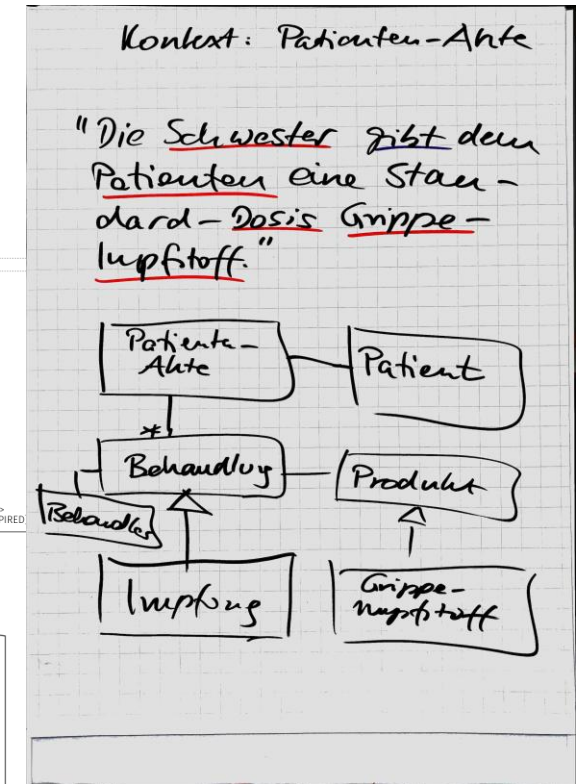 Kontext: Patienten-Akte
"Die Schwester gibt dem
Patienten eine Stan-
dard-Dosis Grippe-
Impfstoff."
Patienten-
Akte
Patient
*
Behandlung
Produkt
Behandler
PIRED
Impfung
Grippe-
impfstoff